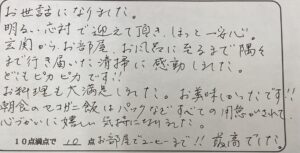 お世話になりました。
明るい応対で迎えて頂き、ほっと一安心。
玄関からお部屋、お風呂に至るまで隅々
まで行き届いた清掃に感動しました。
どこもピカピカです!!
お料理も大満足しました。お美味しかったです!!
朝食のセコガニ飯はパックなどすべての用意がされて
心づかいに嬉しい気持になりました。
10点満点で 10 点 お部屋でコーヒーまで!! 最高でした。